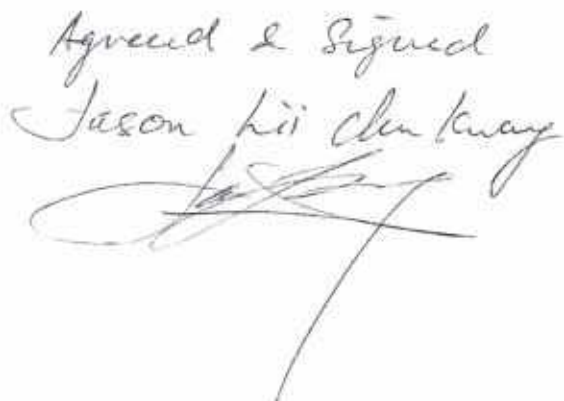 Agreed & Signed
Jason Lii Chu Kuang